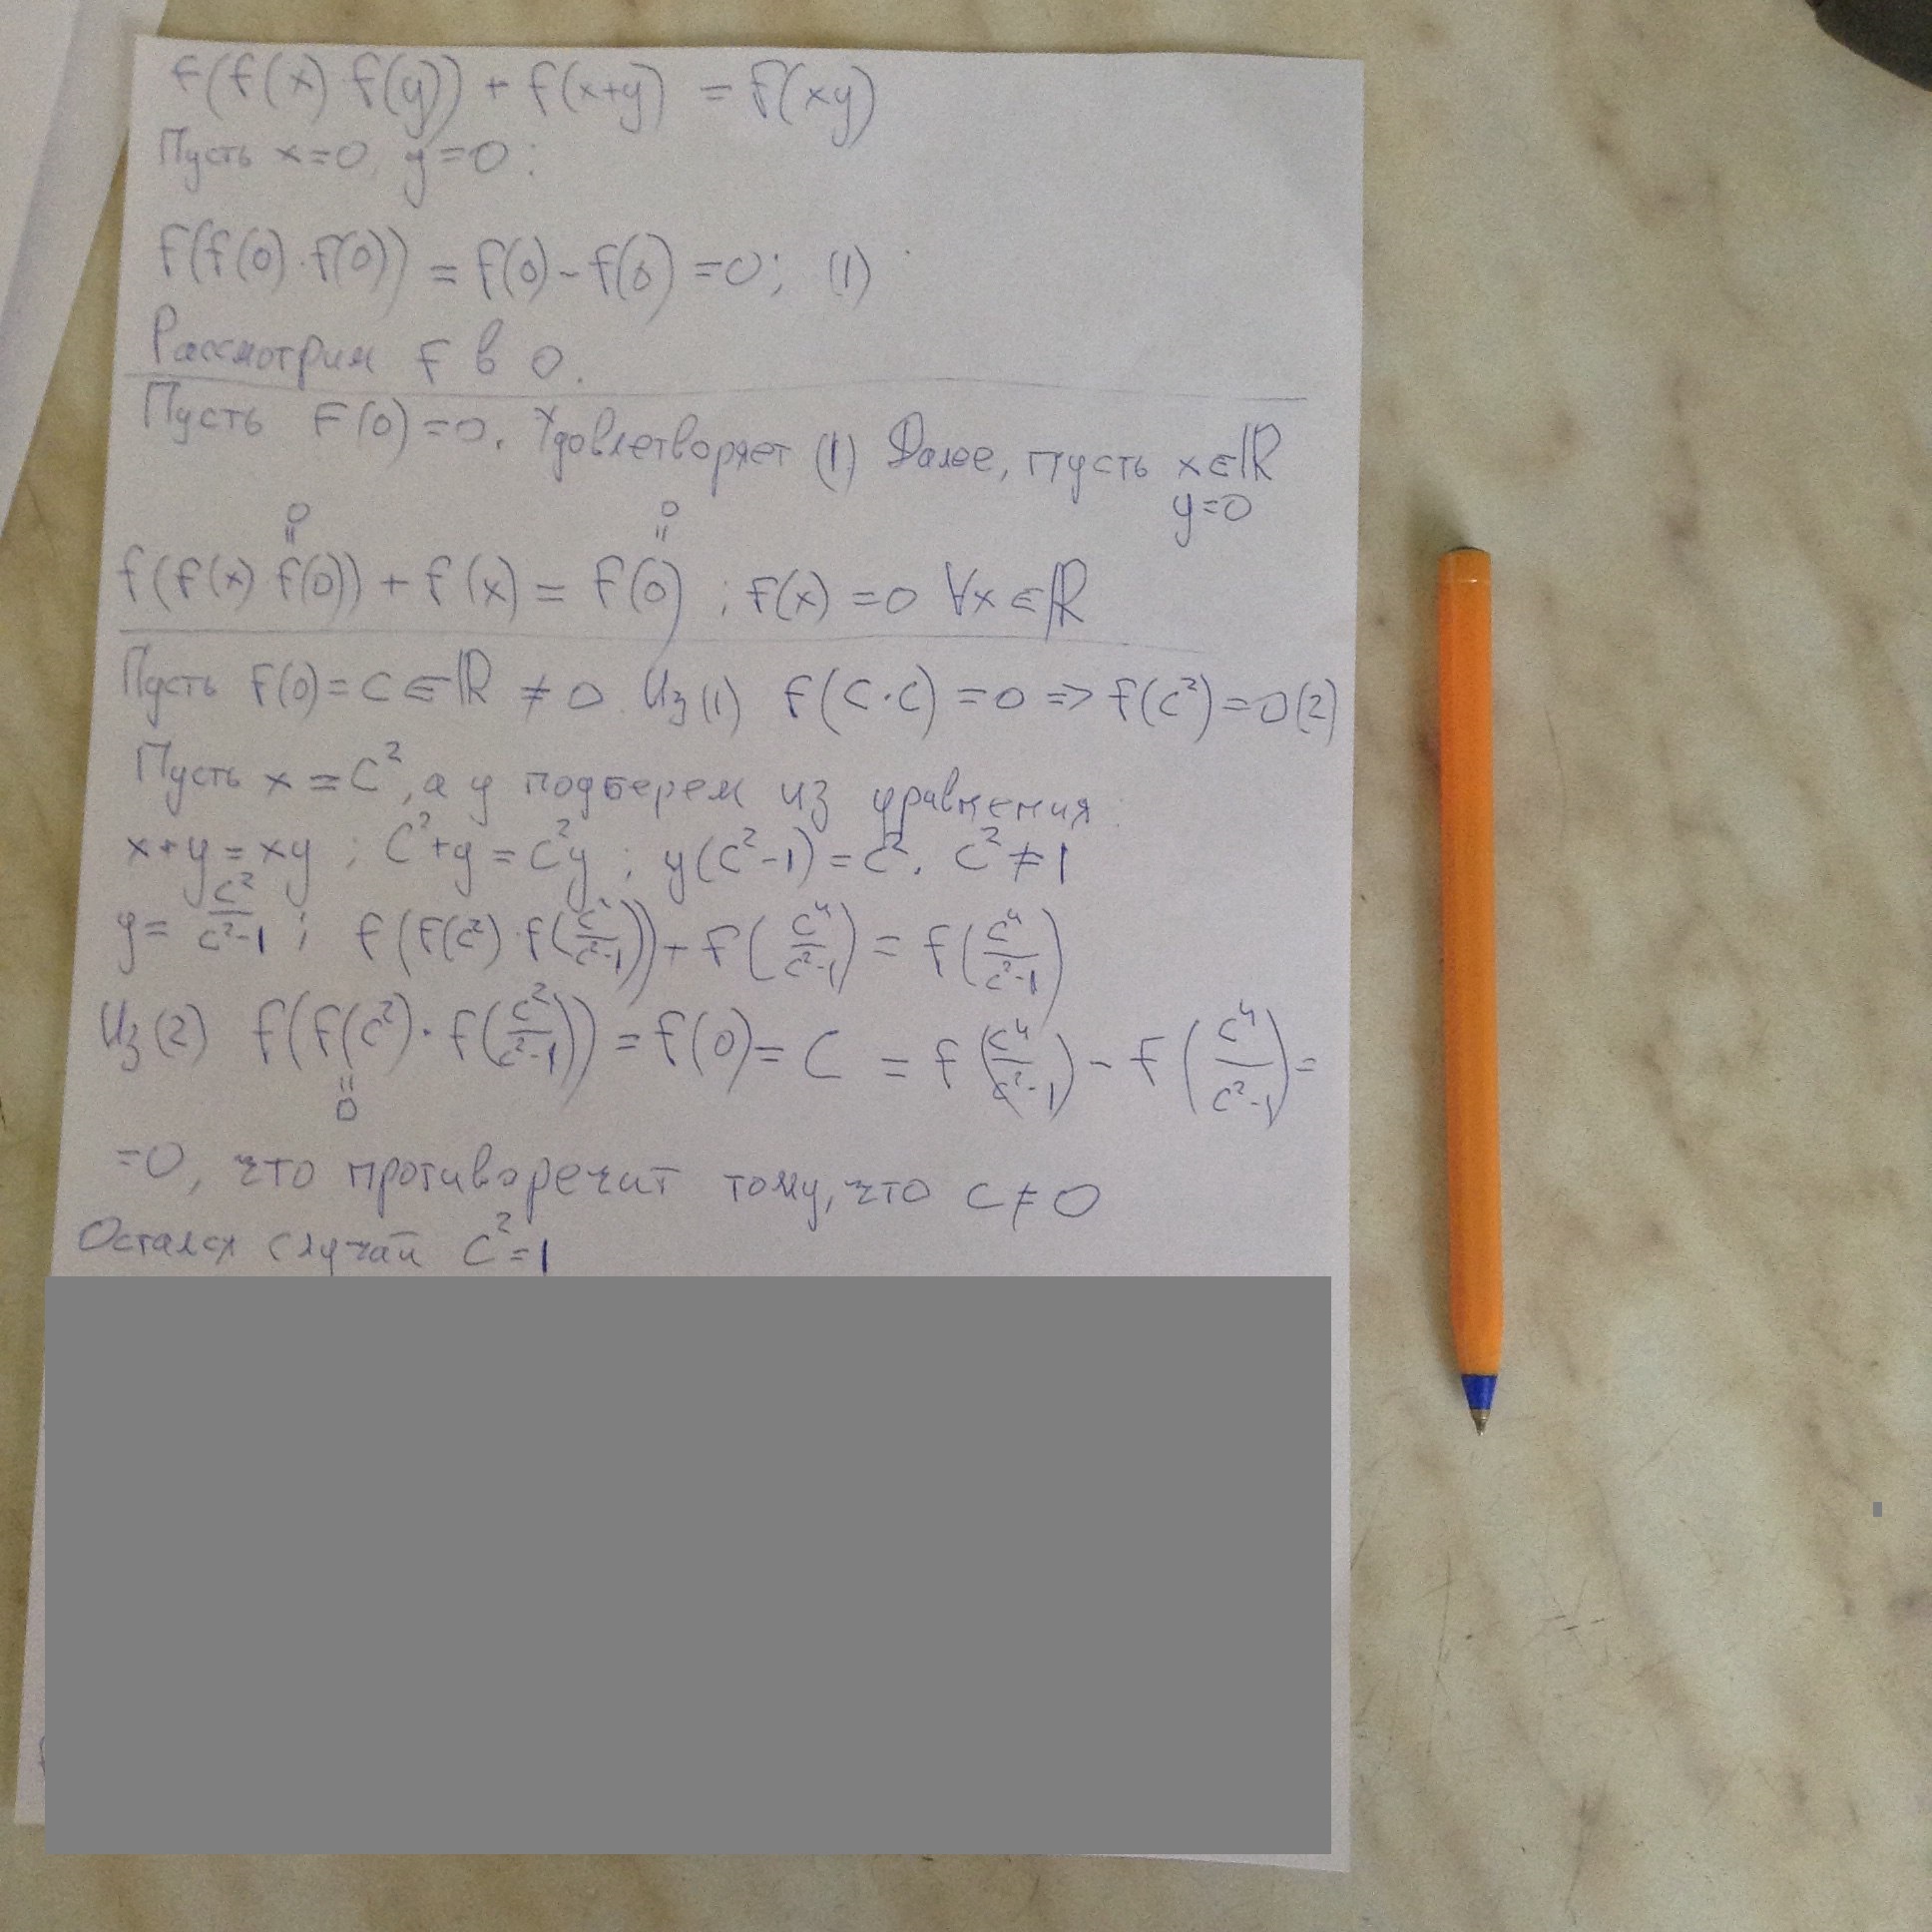 f(f(x) f(y)) + f(x+y) = f(xy)
Пусть x=0, y=0:
f(f(0)·f(0)) = f(0)-f(0) =0; (1)
Рассмотрим f в 0.
Пусть F(0)=0. Удовлетворяет (1) Далее, пусть x∈ℝ
y=0
0 0
|| ||
f(f(x) f(0)) + f(x) = f(0) ; f(x) =0 ∀x∈ℝ
Пусть f(0)=C∈ℝ ≠0. Из (1) f(C·C) =0 => f(C²)=0 (2)
Пусть x=C², а y подберем из уравнения
x+y=xy ; C²+y=C²y ; y(C²-1)=C². C²≠1
y= C²/(C²-1) ; f(f(C²)·f(C²/(C²-1)))+f(C⁴/(C²-1)) = f(C⁴/(C²-1))
Из (2) f(f(C²)·f(C²/(C²-1))) = f(0)= C = f(C⁴/(C²-1)) - f(C⁴/(C²-1))=
||
0
=0, что противоречит тому, что C≠0
Остался случай C²=1